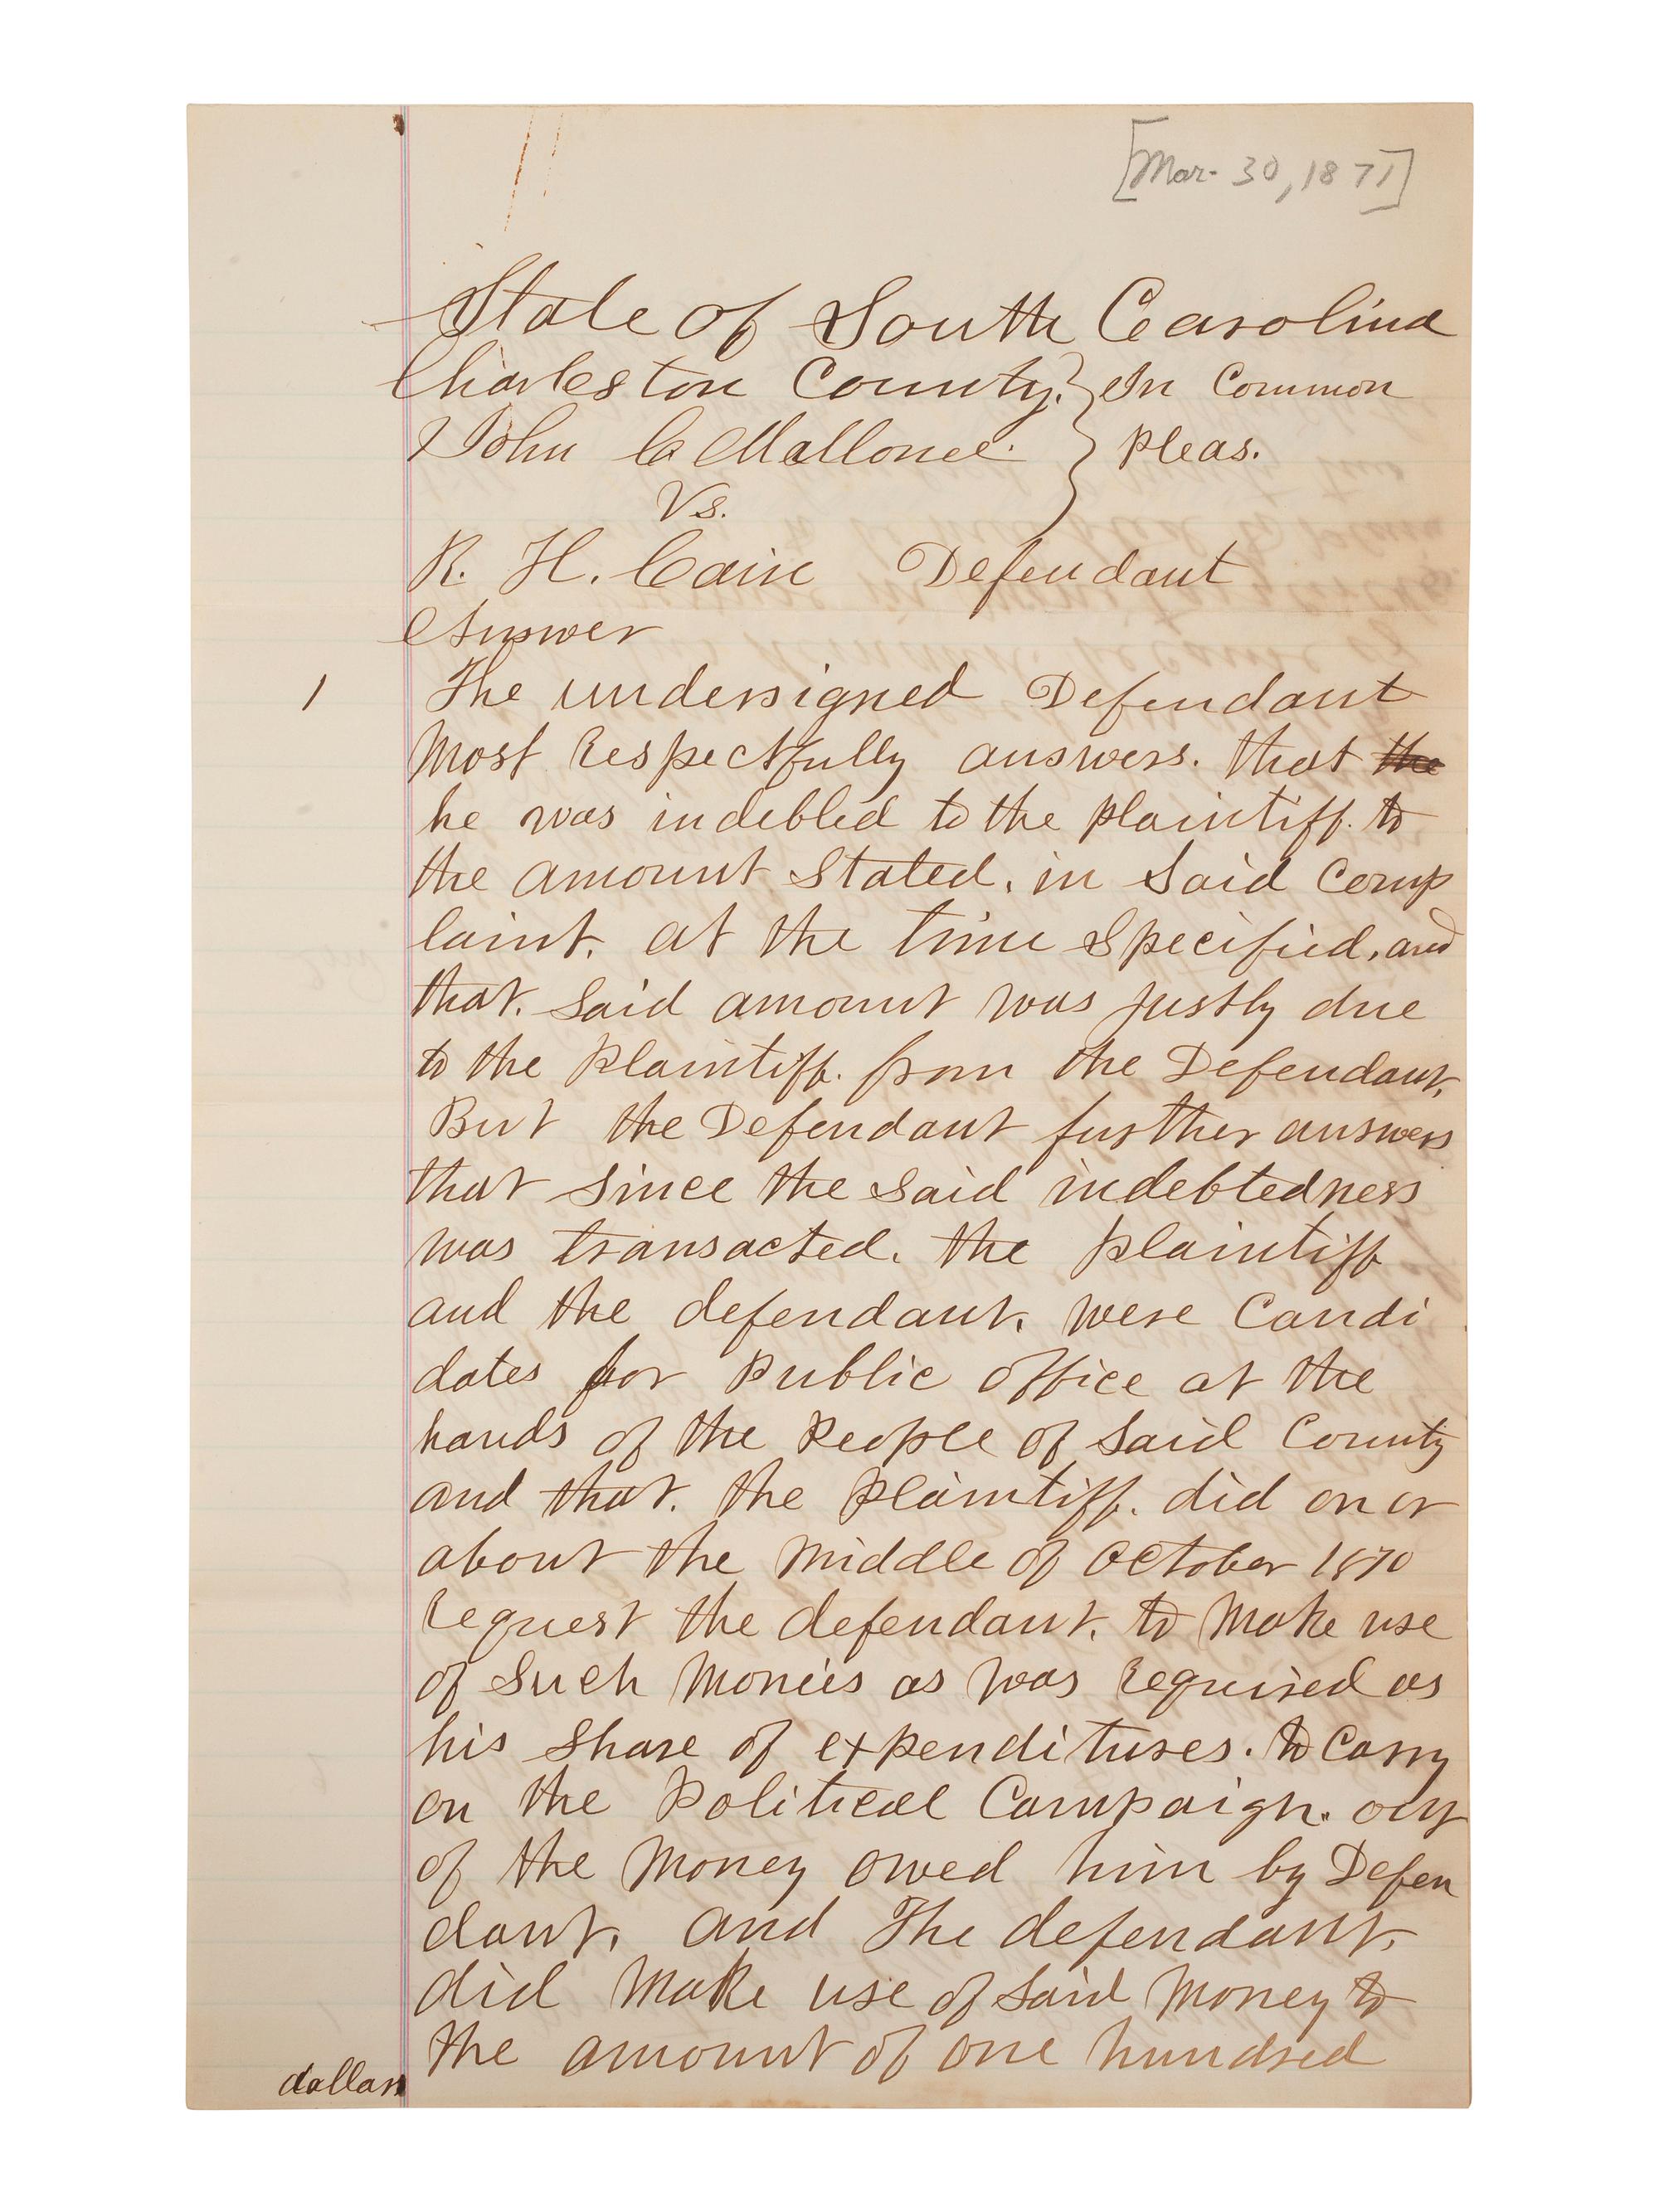 [Mar. 30, 1871]
State of South Carolina
Charleston County. } In Common
John C Mallonee. } Pleas.
Vs.
R. H. Cain Defendant
Answer
1 The undersigned Defendant
Most Respectfully answers. that the
he was indebted to the Plaintiff. to
the amount Stated. in Said Comp
laint. at the time Specified, and
that. Said amount was justly due
to the Plaintiff. from the Defendant.
But the Defendant further answers
that since the said indebtedness
was transacted. the plaintiff
and the defendant. were Candi
dates for Public office at the
hands of the People of Said County
and that. the Plaintiff. did on or
about the Middle of October 1870
Request the defendant. to Make use
of Such Monies as was Required as
his Share of expenditures. to Carry
on the Political Campaign. out
of the Money owed him by Defen
dant. and The defendant.
did Make use of Said Money to
the amount of one hundred
dollars